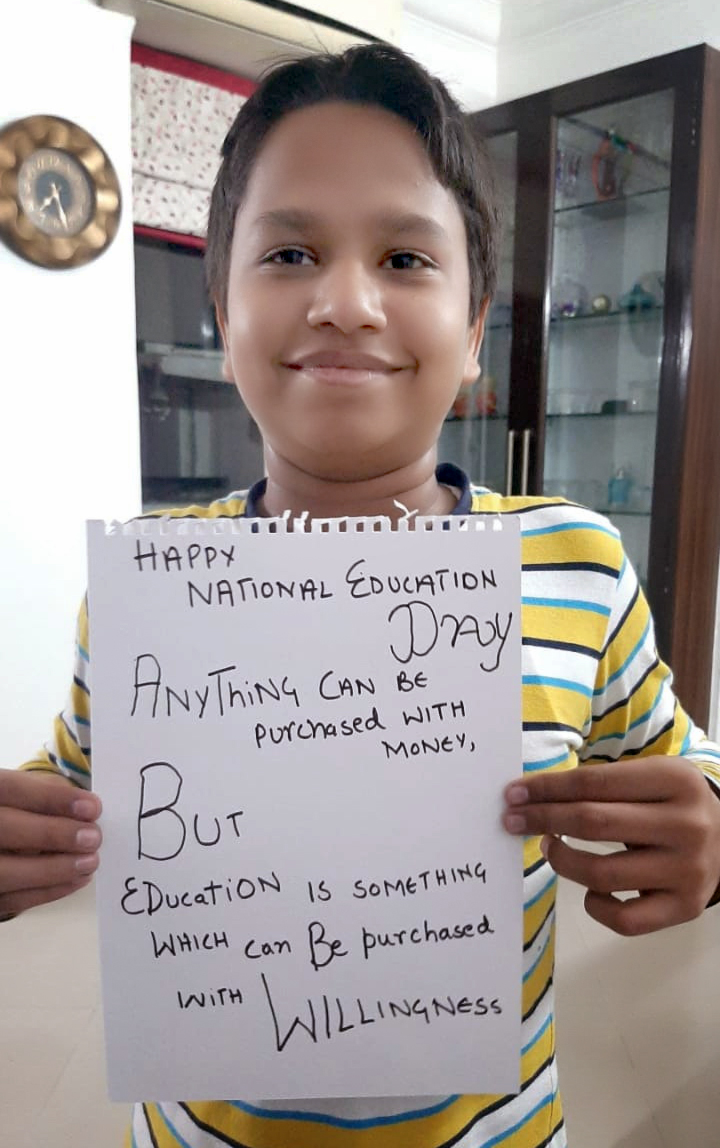 HAPPY
NATIONAL EDUCATION
DAY
ANYThiNG CAN BE
purchased WITH
MONEY,
BUT
EDucatiON IS SOMETHING
WHICH can Be purchased
WITH WILLINGNESS